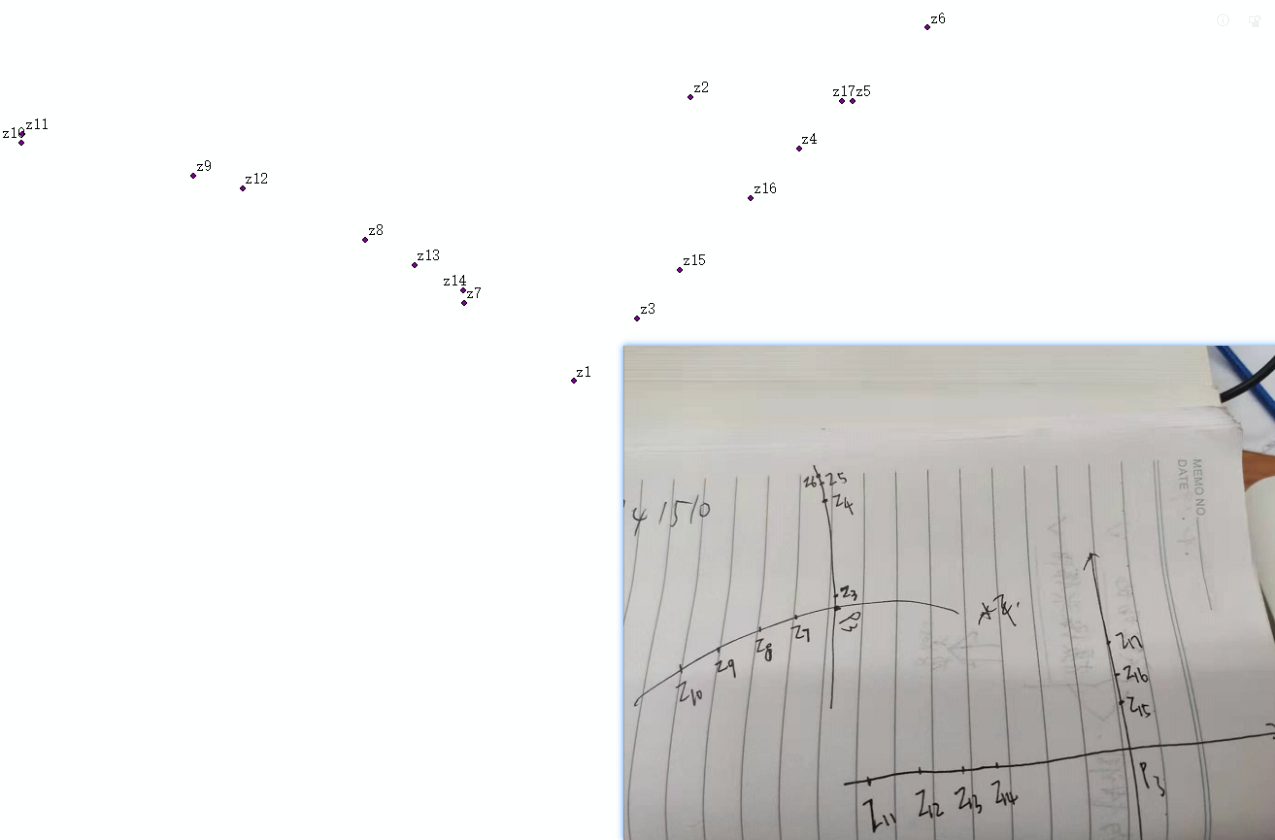 z6
z2
z17 z5
z11
z10
z4
z9
z12
z16
z8
z13
z15
z14
z7
z3
z1
MEMO NO.
DATE
41510
z6 z5
z4
z3
P3
z7
z8
z9
z10
z17
z16
z15
P3
z11 z12 z13 z14